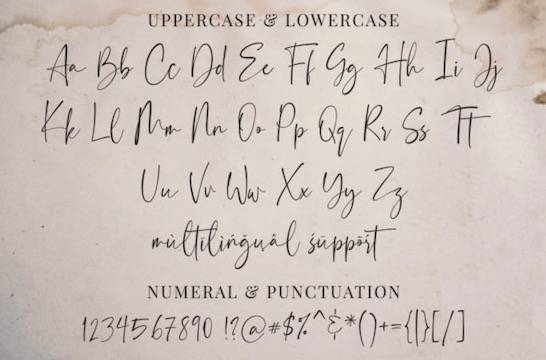 UPPERCASE & LOWERCASE
Aa Bb Cc Dd Ee Ff Gg Hh Ii Jj
Kk Ll Mm Nn Oo Pp Qq Rr Ss Tt
Uu Vv Ww Xx Yy Zz
mùltilìńğuâl śüppőřt
NUMERAL & PUNCTUATION
1234567890 !?@#$%^&*()+={|}[/]